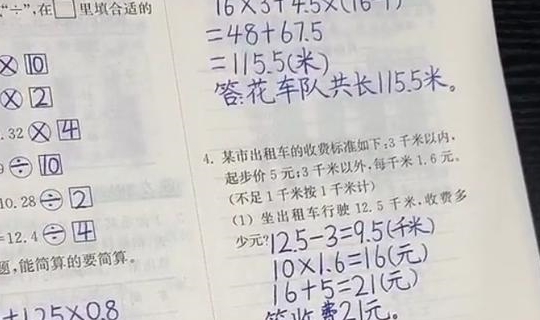 “÷”,在□里填合适的
× 10
× 2
.32 × 4
9 ÷ 10
10.28 ÷ 2
=12.4 ÷ 4
题,能简算的要简算。
+125×0.8
16×3+4.5×(16-1)
=48+67.5
=115.5(米)
答:花车队共长115.5米。
4. 某市出租车的收费标准如下:3 千米以内,
起步价 5 元;3 千米以外,每千米 1.6 元。
(不足 1 千米按 1 千米计)
(1) 坐出租车行驶 12.5 千米,收费多
少元?12.5-3=9.5(千米)
10×1.6=16(元)
16+5=21(元)
答:收费21元。